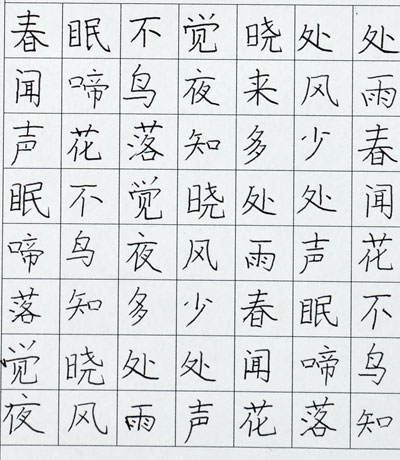 春眠不觉晓处处
闻啼鸟夜来风雨
声花落知多少春
眠不觉晓处处闻
啼鸟夜风雨声花
落知多少春眠不
觉晓处处闻啼鸟
夜风雨声花落知